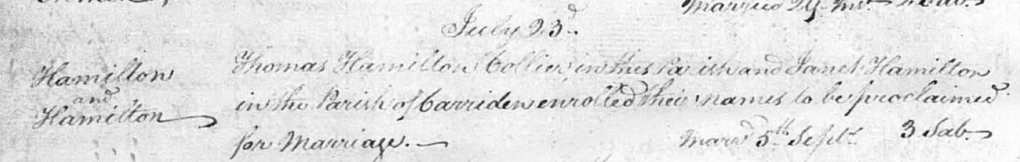 Married 29th
July 23d.
Hamilton Thomas Hamilton Collier, in this Parish and Janet Hamilton
and
Hamilton in the Parish of Carriden enrolled their names to be proclaimed
for Marriage. — Marrd 5th Septr. 3 Sab.